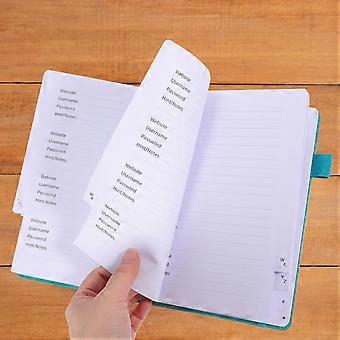 Website
Username
Password
Hint/Notes
Website
Username
Password
Hint/Notes
Website
Username
Password
Hint/Notes
Website
Username
Password
Hint/Notes
Website
Username
Password
Hint/Notes
Website
Username
Password
Hint/Notes
Website
Username
Password
Hint/Notes
Website
Username
Password
Hint/Notes
W
X
Y
Z